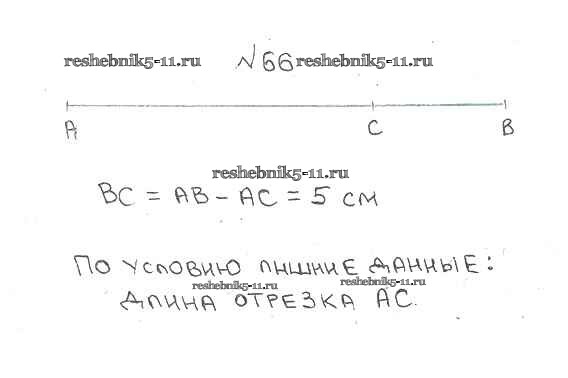 reshebnik5-11.ru №66 reshebnik5-11.ru
A C B
reshebnik5-11.ru
BC = AB - AC = 5 см
По условию лишние данные:
reshebnik5-11.ru reshebnik5-11.ru
длина отрезка AC.